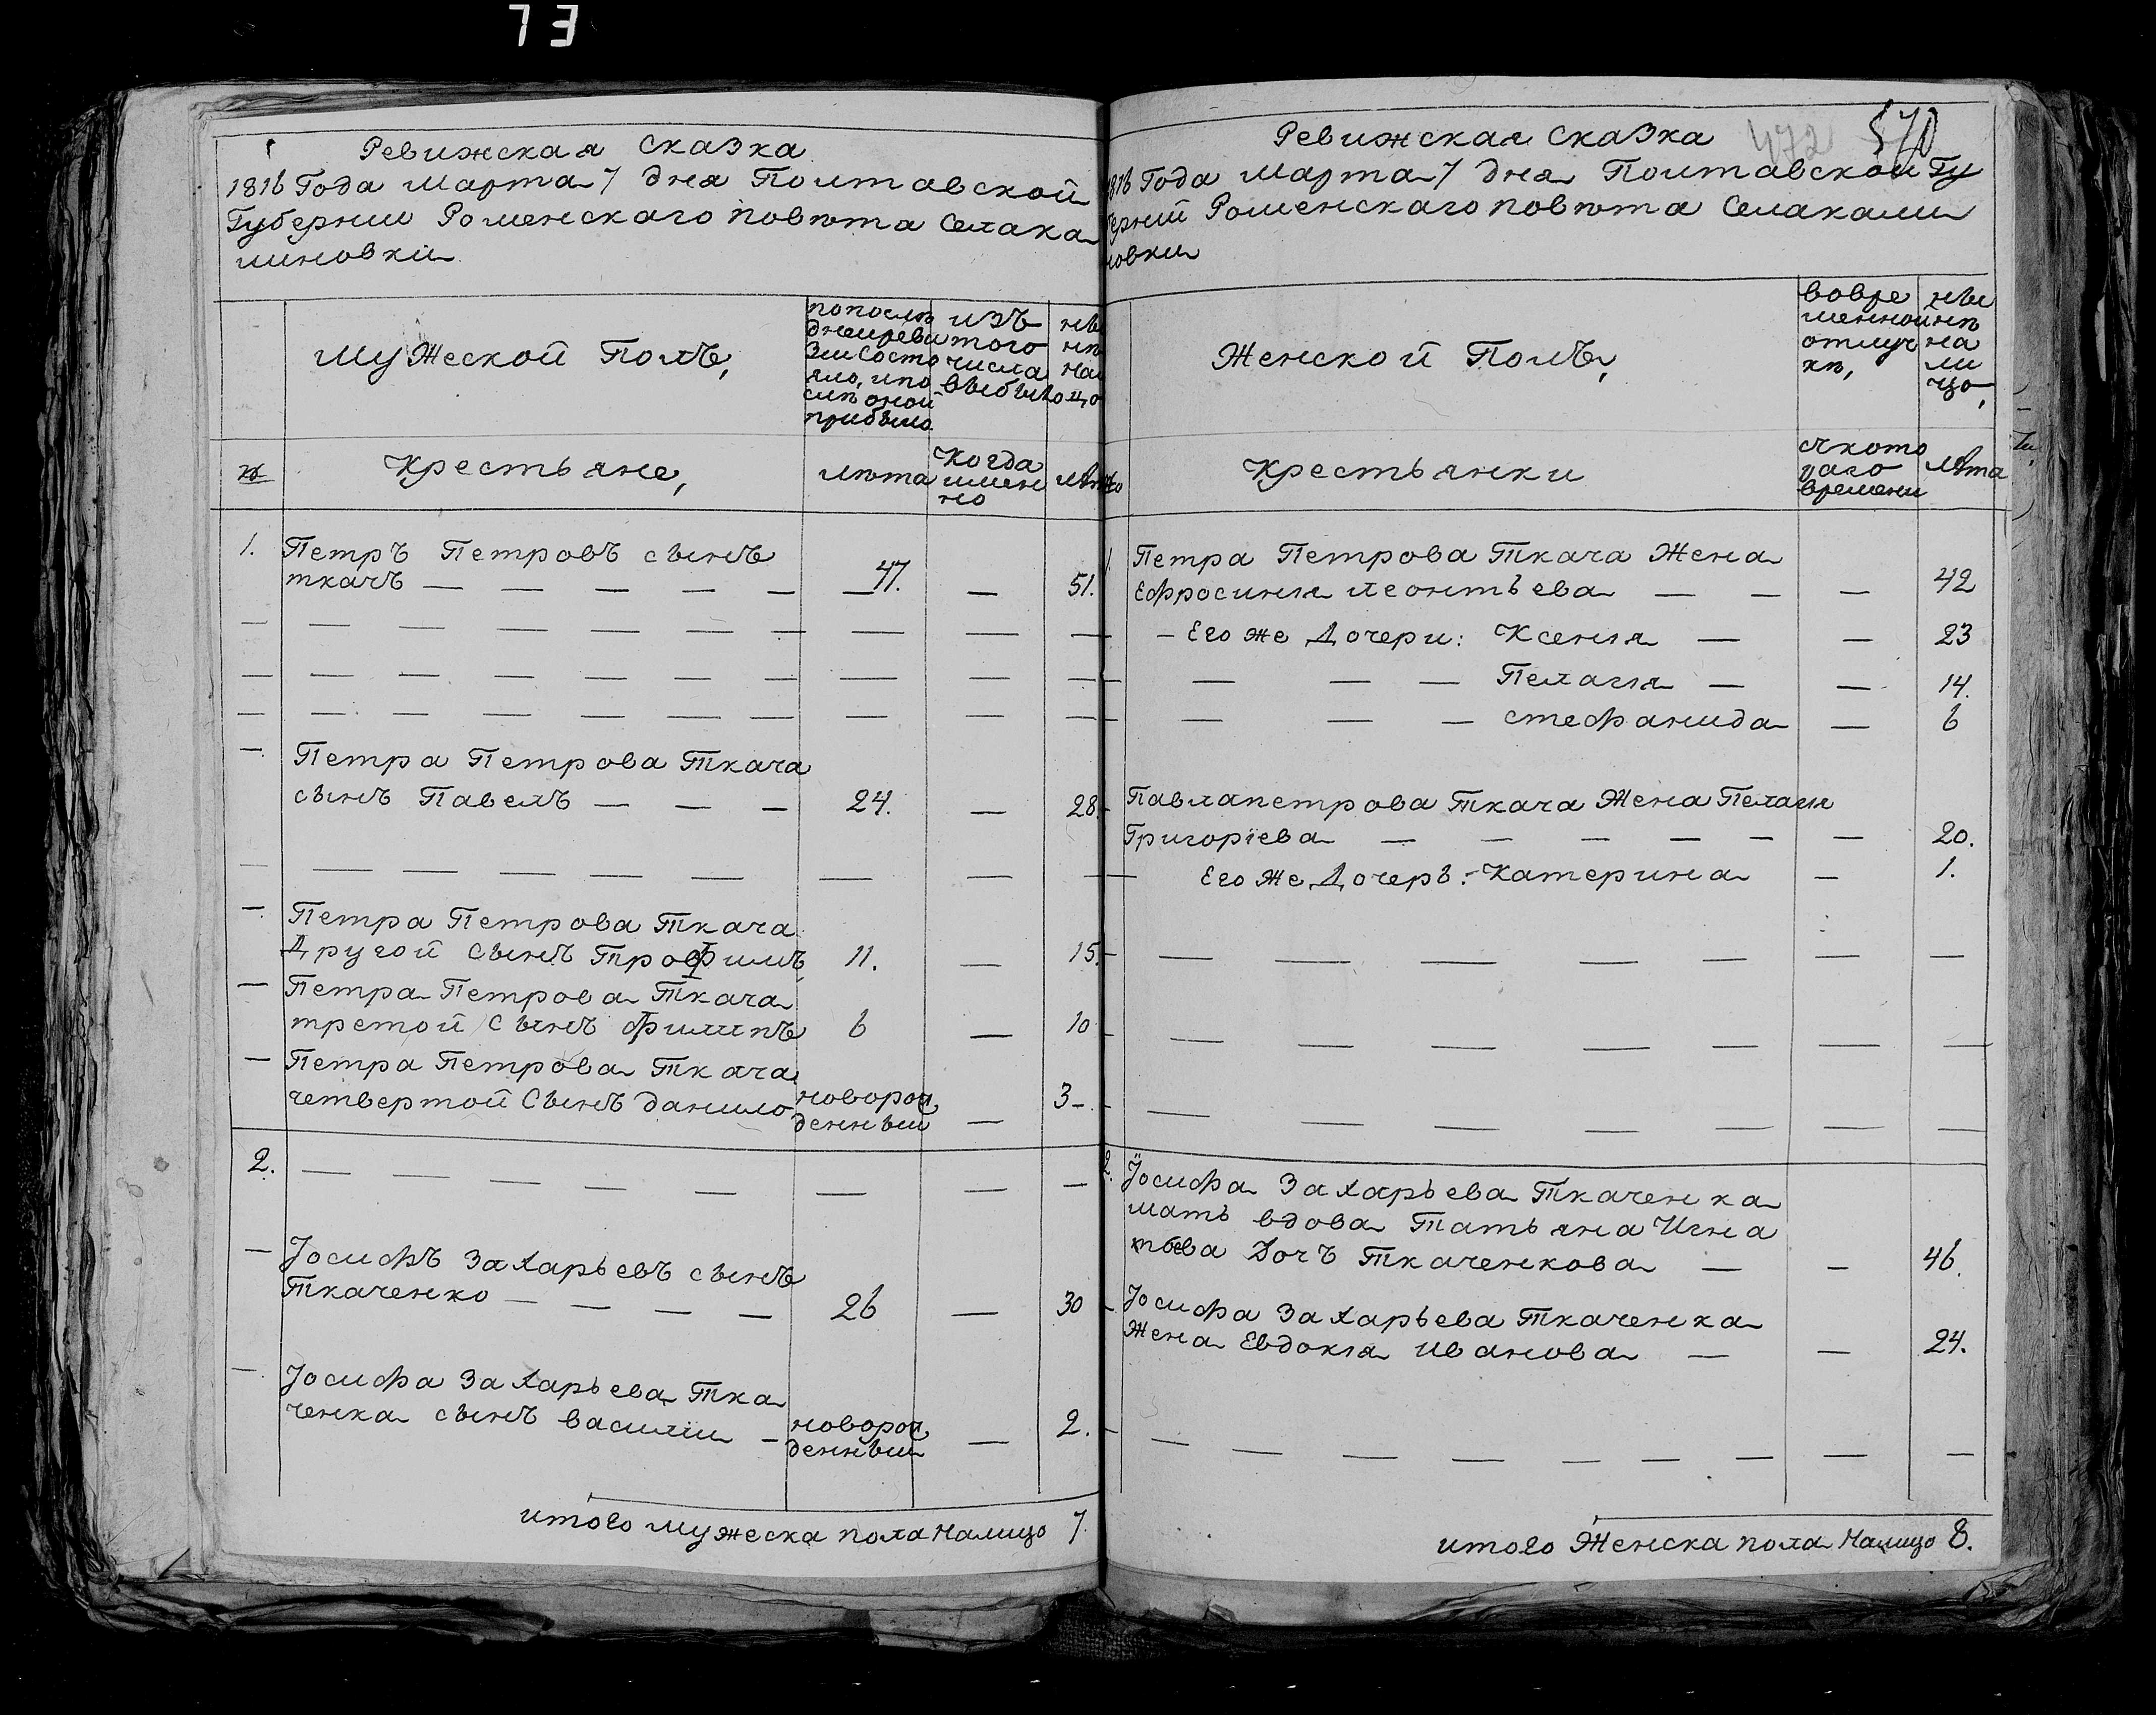 73
Ревижская сказка
1816 Года марта 7 дня Полтавской
Губернии Роменскаго повѣта Села ка
линовки
мужеской Полъ,
попослѣ
днейреви
зии состо
яло, ипо
слѣ оной
прибыло
изъ
того
числа
выбыло
ны
нѣ
на
лицо
№
крестьяне,
лѣта
когда
имен
но
лѣта
1. Петръ Петровъ сынъ
ткачъ — — — — — 47. — 51.
— Петра Петрова Ткача
сынъ Павелъ — — — 24. — 28.
— Петра Петрова Ткача
Другой сынъ Трофимъ 11. — 15.
— Петра Петрова Ткача
третой сынъ Филипъ 6 — 10
— Петра Петрова Ткача
четвертой Сынъ данило новорож
денный — 3
2. — — — — — — — —
— Іосифъ Захарьевъ сынъ
Ткаченко — — — — 26 — 30
— Іосифа Захарьева Тка
ченка сынъ василий — новорож
денный — 2.
итого мужеска пола налицо 7.
472 570
Ревижская сказка
1816 Года марта 7 дня Полтавской Гу
берний Роменскаго повѣта Села кали
новки
Женской Полъ,
вовре
менной
отлуч
кѣ,
ны
нѣ
на
ли
цо,
крестьянки
съкото
раго
времени
лѣта
1 Петра Петрова Ткача Жена
Ефросиния леонтьева — — — 42
— Его же Дочери: Ксения — — 23
— — — Пелагия — — 14.
— — — стефанида — 6
— Павлапетрова Ткача Жена Пелагия
Григоріева — — — — — — 20.
Его же Дочеръ: Катерина — 1.
2. Іосифа Захарьева Ткаченка
мать вдова Татьяна Игна
тьева Дочъ Ткаченкова — — 46.
— Іосифа Захарьева Ткаченка
Жена Евдокия иванова — — 24.
итого Женска пола налицо 8.